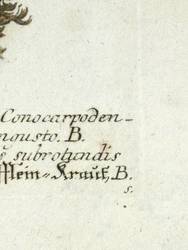 Conocarpoden-
ngusto. B.
s subrotundis
fflein-Kraut, B.
s.